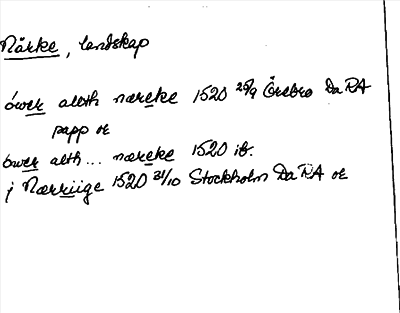 Närke, landskap
ówer alth næreke 1520 25/9 Örebro DaRA
papp or
ówer alth ... næreke 1520 ib.
j Nærriige 1520 31/10 Stockholm DaRA or